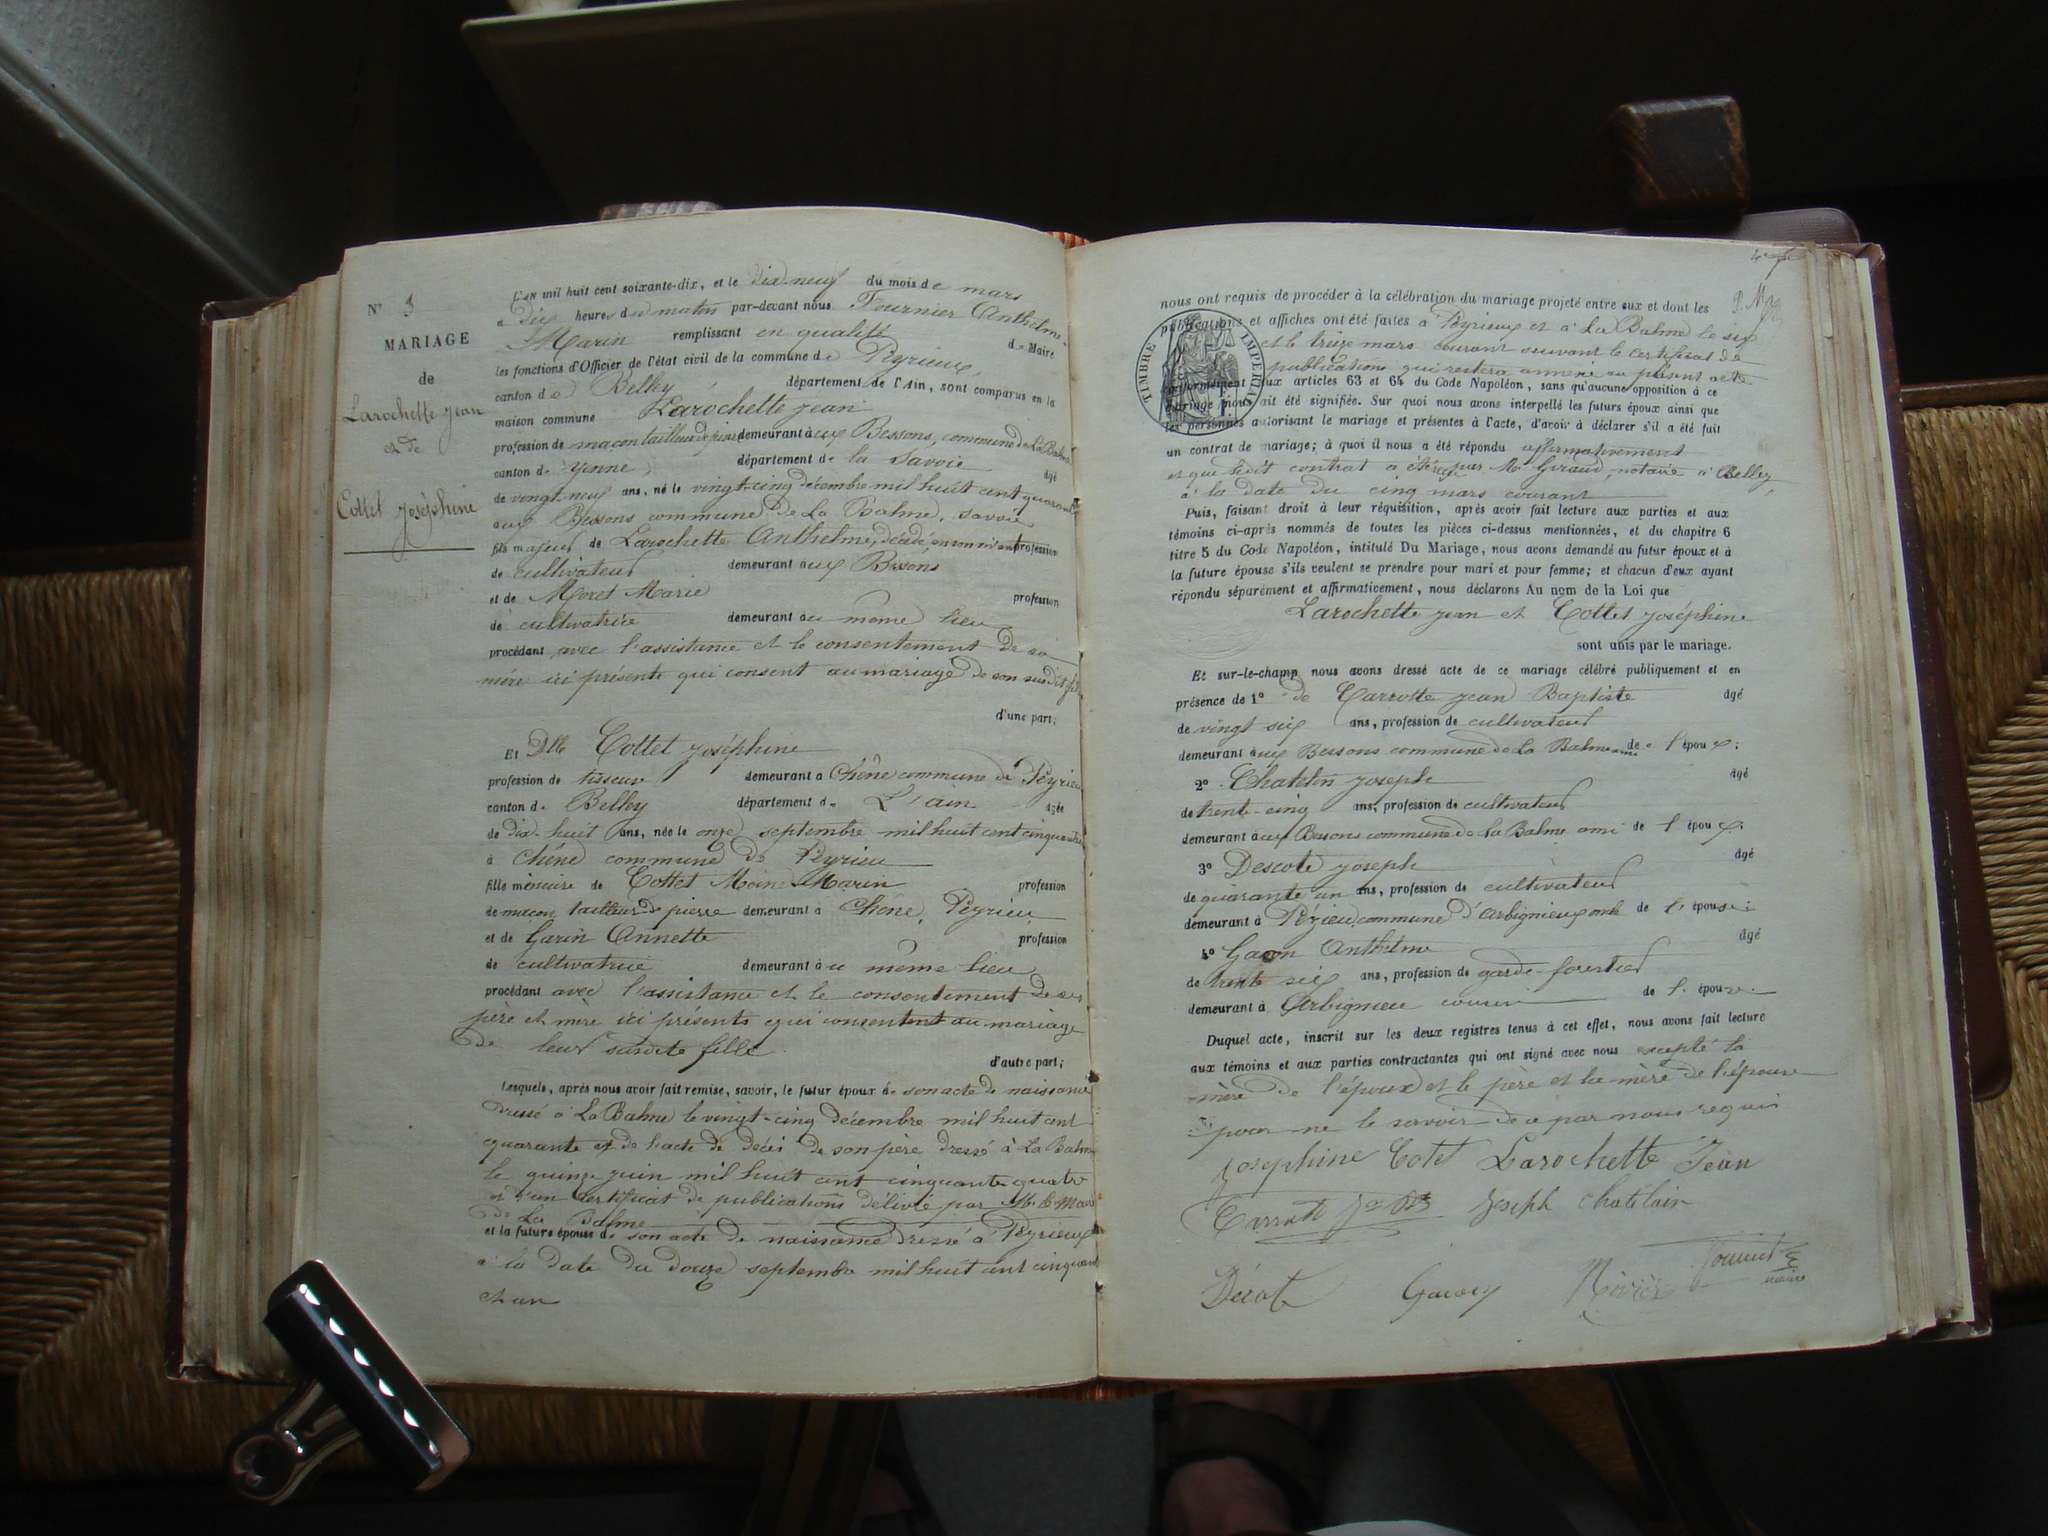 N° 3
MARIAGE
de
Larochette Jean
et de
Cottet Joséphine
L'an mil huit cent soixante-dix, et le dix-neuf du mois de mars
à dix heures du matin par-devant nous Fournier Anthelme
Marin remplissant en qualité de Maire
les fonctions d'Officier de l'état civil de la commune de Peyrieux,
canton de Belley département de l'Ain, sont comparus en la
maison commune Larochette Jean
profession de maçon tailleur de pierre demeurant aux Bessons, commune de La Balme
canton de Yenne, département de la Savoie âgé
de vingt-neuf ans, né le vingt-cinq décembre mil huit cent quarante
aux Bessons commune de La Balme, Savoie
fils majeur de Larochette Anthelme, décédé, en son vivant profession
de cultivateur demeurant aux Bessons
et de Moret Marie profession
de cultivatrice demeurant au même lieu
procédant avec l'assistance et le consentement de sa
mère ici présente qui consent au mariage de son susdit fils
d'une part;
Et Dlle Cottet Joséphine
profession de tisseur demeurant à Chêne commune de Peyrieu
canton de Belley département de L'ain âgée
de dix-huit ans, née le onze septembre mil huit cent cinquante
à Chêne commune de Peyrieu
fille mineure de Cottet Marin profession
de maçon tailleur de pierre demeurant à Chêne, Peyrieu
et de Garin Annette profession
de cultivatrice demeurant au même lieu
procédant avec l'assistance et le consentement de ses
père et mère ici présents qui consentent au mariage
de leur susdite fille
d'autre part;
Lesquels, après nous avoir fait remise, savoir, le futur époux de son acte de naissance
dressé à La Balme le vingt-cinq décembre mil huit cent
quarante et de l'acte de décès de son père dressé à La Balme
le quinze juin mil huit cent cinquante quatre
et d'un certificat de publications délivré par Mr le Maire
de La Balme
et la future épouse de son acte de naissance dressé à Peyrieux
à la date du douze septembre mil huit cent cinquante
et un
nous ont requis de procéder à la célébration du mariage projeté entre eux et dont les
publications et affiches ont été faites à Peyrieux et à La Balme le six
et le treize mars courant suivant le certificat de
publications qui restera annexé au présent acte
conformément aux articles 63 et 64 du Code Napoléon, sans qu'aucune opposition à ce
mariage nous ait été signifiée. Sur quoi nous avons interpellé les futurs époux ainsi que
les personnes autorisant le mariage et présentes à l'acte, d'avoir à déclarer s'il a été fait
un contrat de mariage; à quoi il nous a été répondu affirmativement
et que ledit contrat a été reçu par Me Giraud, notaire à Belley,
à la date du cinq mars courant
TIMBRE IMPÉRIAL
Puis, faisant droit à leur réquisition, après avoir fait lecture aux parties et aux
témoins ci-après nommés de toutes les pièces ci-dessus mentionnées, et du chapitre 6
titre 5 du Code Napoléon, intitulé Du Mariage, nous avons demandé au futur époux et à
la future épouse s'ils veulent se prendre pour mari et pour femme; et chacun d'eux ayant
répondu séparément et affirmativement, nous déclarons Au nom de la Loi que
Larochette Jean et Cottet Joséphine
sont unis par le mariage.
Et sur-le-champ nous avons dressé acte de ce mariage célébré publiquement et en
présence de 1° de Carrotte Jean Baptiste âgé
de vingt six ans, profession de cultivateur
demeurant aux Bessons commune de La Balme ami de l'époux;
2° Chatelin Joseph âgé
de trente-cinq ans, profession de cultivateur
demeurant aux Bessons commune de la Balme ami de l'époux;
3° Descote Joseph âgé
de quarante un ans, profession de cultivateur
demeurant à Peyzieu, commune d'Arbignieux oncle de l'épouse;
4° Gacon Anthelme âgé
de trente six ans, profession de garde-forestier
demeurant à Arbignieu cousin de l'épouse.
Duquel acte, inscrit sur les deux registres tenus à cet effet, nous avons fait lecture
aux témoins et aux parties contractantes qui ont signé avec nous excepté la
mère de l'époux et le père et la mère de l'épouse
pour ne le savoir de ce par nous requis
Josephine Cotet Larochette Jean
Carrotte Jn Bte Joseph Chatelain
Décote